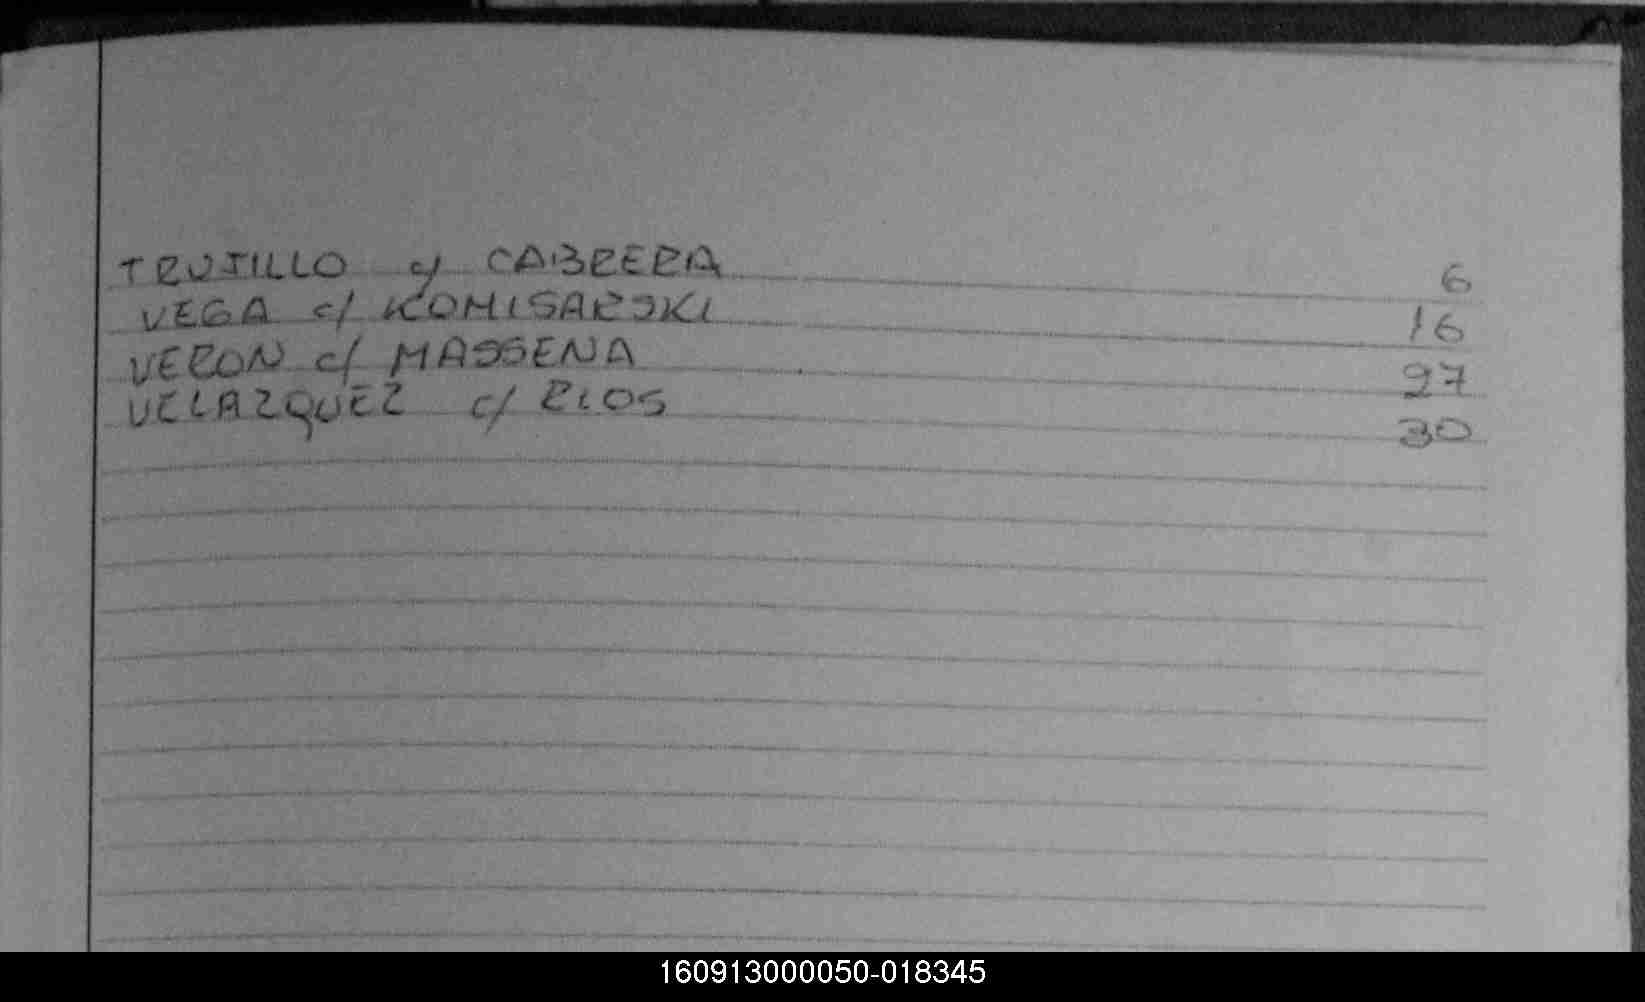 TRUJILLO c/ CABRERA 6
VEGA c/ KOMISARSKI 16
VERON c/ MASSENA 27
VELAZQUEZ c/ RIOS 30
160913000050-018345